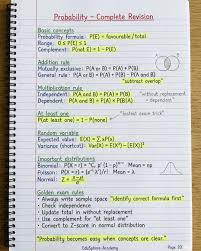 Probability – Complete Revision
Basic concepts
Probability formula: P(E) = favourable/total
Range: 0 ≤ P(E) ≤ 1
Complement: P(not E) = 1 – P(E)
Addition rule
Mutually exclusive: P(A or B) = P(A) + P(B)
General rule: P(A or B) = P(A) + P(B) – P(A and B)
"subtract overlap"
Multiplication rule
Independent: P(A and B) = P(A) × P(B)
Dependent: P(A and B) = P(A) × P(B|A)
"without replacement
→ dependent"
At least one
P(at least one) = 1 – P(none)
"fastest exam trick"
Random variable
Expected value: E(X) = Σ xP(x)
Variance (shortcut): Var(X) = E(X²) – [E(X)]²
Important distributions
Binomial: P(X=r) = (n, r) pʳ (1–p)ⁿ⁻ʳ Mean = np
Poisson: P(X=r) = (e⁻λ λʳ)/r! Mean = λ
Normal: Z =
Golden exam rules
• Always write sample space
• Check independence
• Update total in without replacement
• Use complement for at least one
• Convert to Z-score in normal distribution
"identify correct formula first"
"Probability becomes easy when concepts are clear."
EduSphere Academy
Page 20